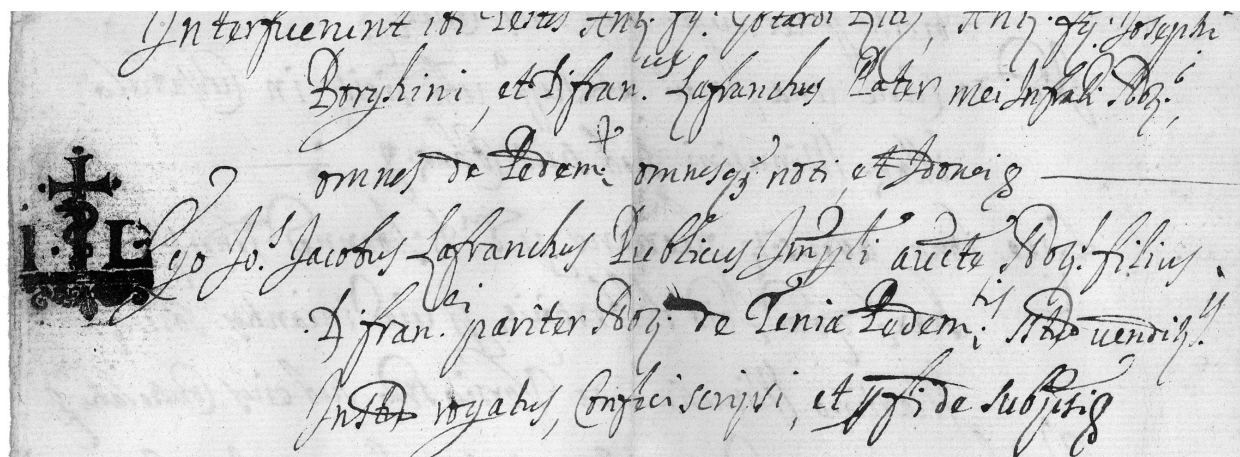 Interfuerunt ibi Testes Antᵒ. fq. Gotardi Antᵒ. fq. Josephi
Borghini, et D. franᵘˢ. Lafranchus Pater mei Infrati Notᵢ.
omnes de Pedemᵗᵉ. omnesq; noti, et Idonei
I. L. Ego Joˢ. Jacobus Lafranchus Publicus Impli aucte Notˢ. filius
D. franᶜⁱ. pariter Notⁱ. de Tenia Pedemᵗⁱˢ. venditⁱˢ.
rogatus, Confeci scripsi, et pfide subscripsi